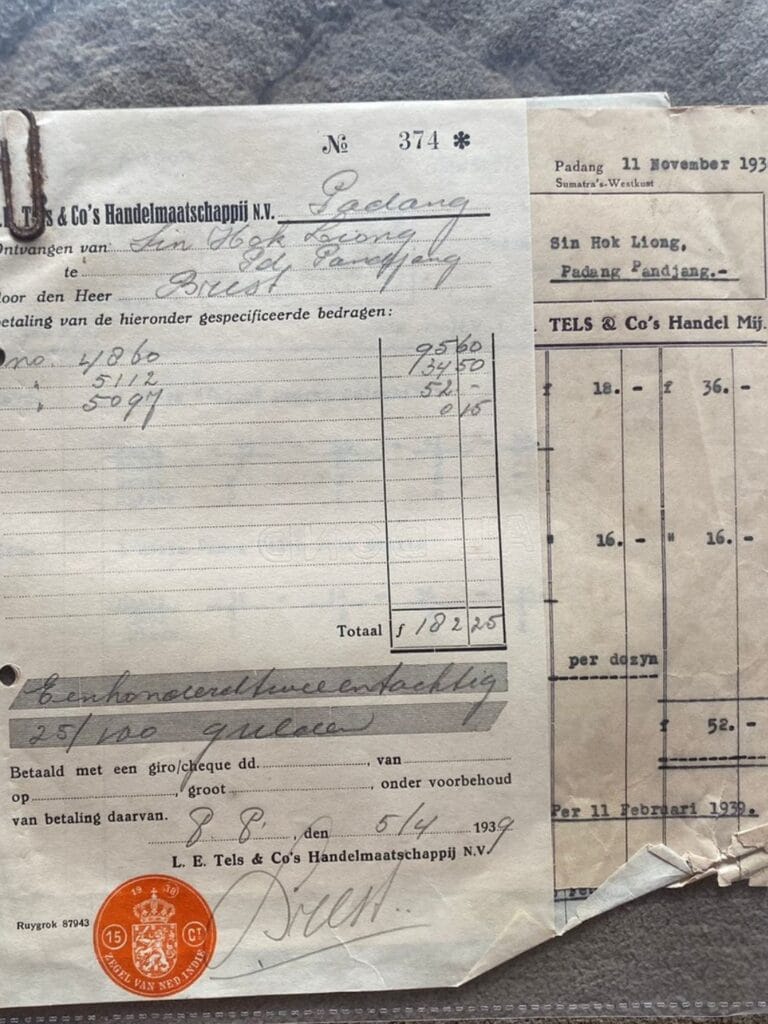 № 374 *
L. E. Tels & Co's Handelmaatschappij N.V. Padang
Ontvangen van Sin Hok Liong
te Pd. Pandjang
door den Heer Briest
betaling van de hieronder gespecificeerde bedragen:
no. 4860 95 60
" 5112 134 50
" 5097 52 -
0 15
Totaal f 182 25
Eenhonderdtweeentachtig
25/100 gulden
Betaald met een giro/cheque dd. , van
op , groot , onder voorbehoud
van betaling daarvan.
P. P. , den 5/4 1939
L. E. Tels & Co's Handelmaatschappij N.V.
Briest
Ruygrok 87943
19 38
15 CT
ZEGEL VAN NED INDIE
Padang 11 November 193
Sumatra's-Westkust
Sin Hok Liong,
Padang Pandjang.-
TELS & Co's Handel Mij.
f 18. - f 36. -
" 16. - " 16. -
per dozyn
f 52. -
Per 11 Februari 1939.